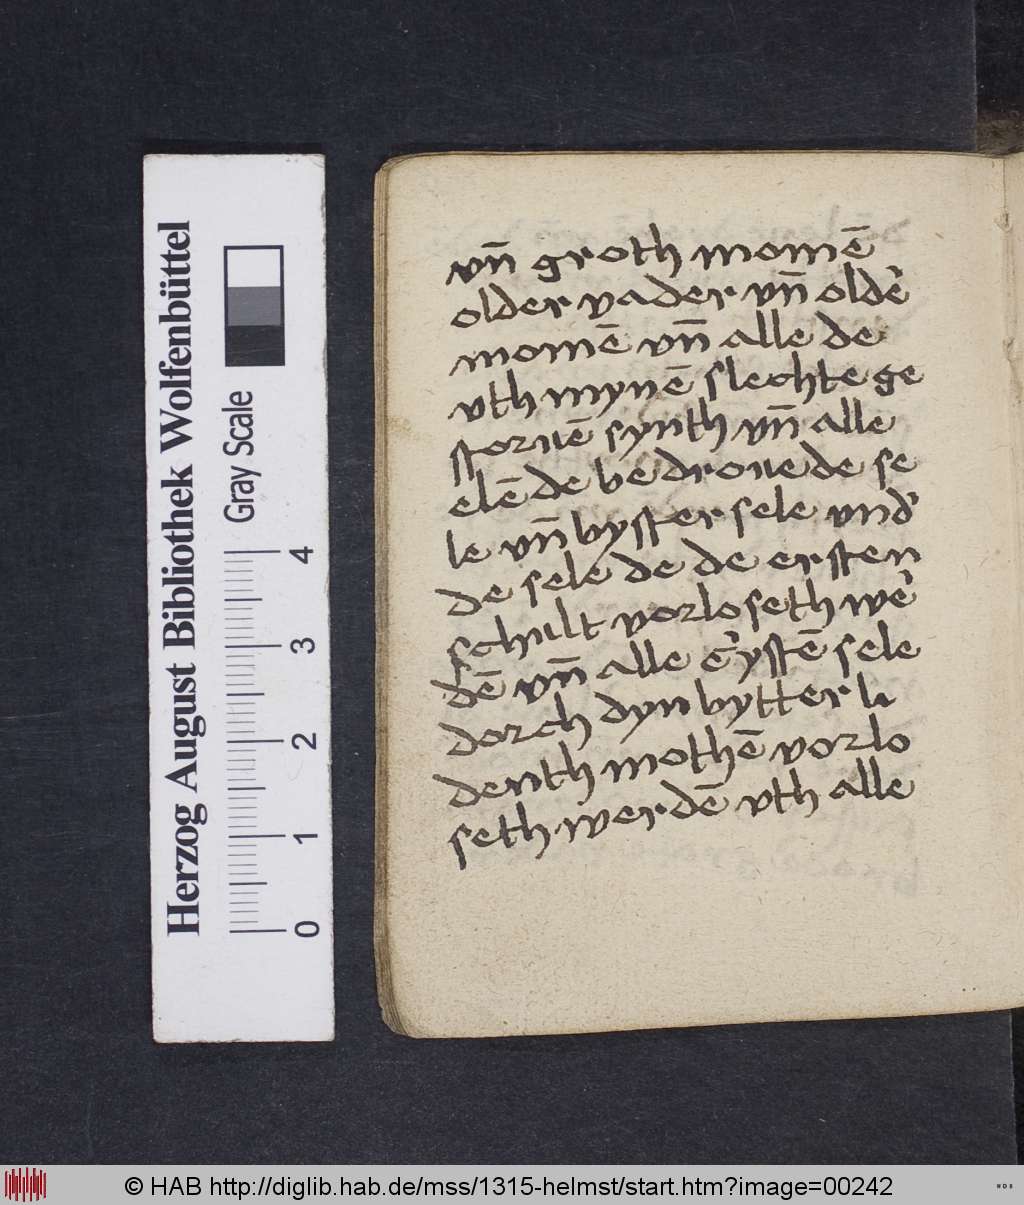 Herzog August Bibliothek Wolfenbüttel
Gray Scale
0 1 2 3 4
vn̄ groth momē
older vader vn̄ oldē
momē vn̄ alle de
vth mynē slechte ge
storuē synth vn̄ alle
elēde be droue de se
le vn̄ byster sele vnd'
de sele de de ersten
schult vorloseth we'
dē vn̄ alle c'ystē sele
dorch dyn bytter li
denth mothē vorlo
seth werdē vth alle
© HAB http://diglib.hab.de/mss/1315-helmst/start.htm?image=00242